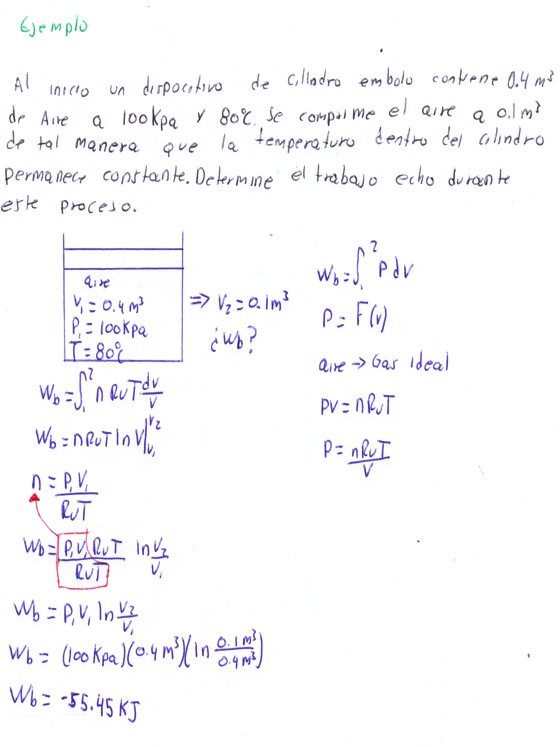 Ejemplo
Al inicio un dispositivo de cilindro embolo contiene 0.4 m³
de Aire a 100Kpa y 80°C. Se comprime el aire a 0.1m³
de tal manera que la temperatura dentro del cilindro
permanece constante. Determine el trabajo echo durante
este proceso.
aire
V₁ = 0.4 m³
P₁ = 100Kpa
T = 80°C
=> V₂ = 0.1m³
¿Wb?
Wb = ∫₁² P dV
P = F(v)
aire → Gas ideal
PV = nRuT
P = nRuT/V
Wb = ∫₁² n RuT dv/V
Wb = nRuT ln V|v₁ v₂
n = P₁V₁/RuT
Wb = P₁V₁ RuT/RuT ln V₂/V₁
Wb = P₁V₁ ln V₂/V₁
Wb = (100Kpa)(0.4 m³)(ln 0.1m³/0.4m³)
Wb = -55.45 KJ